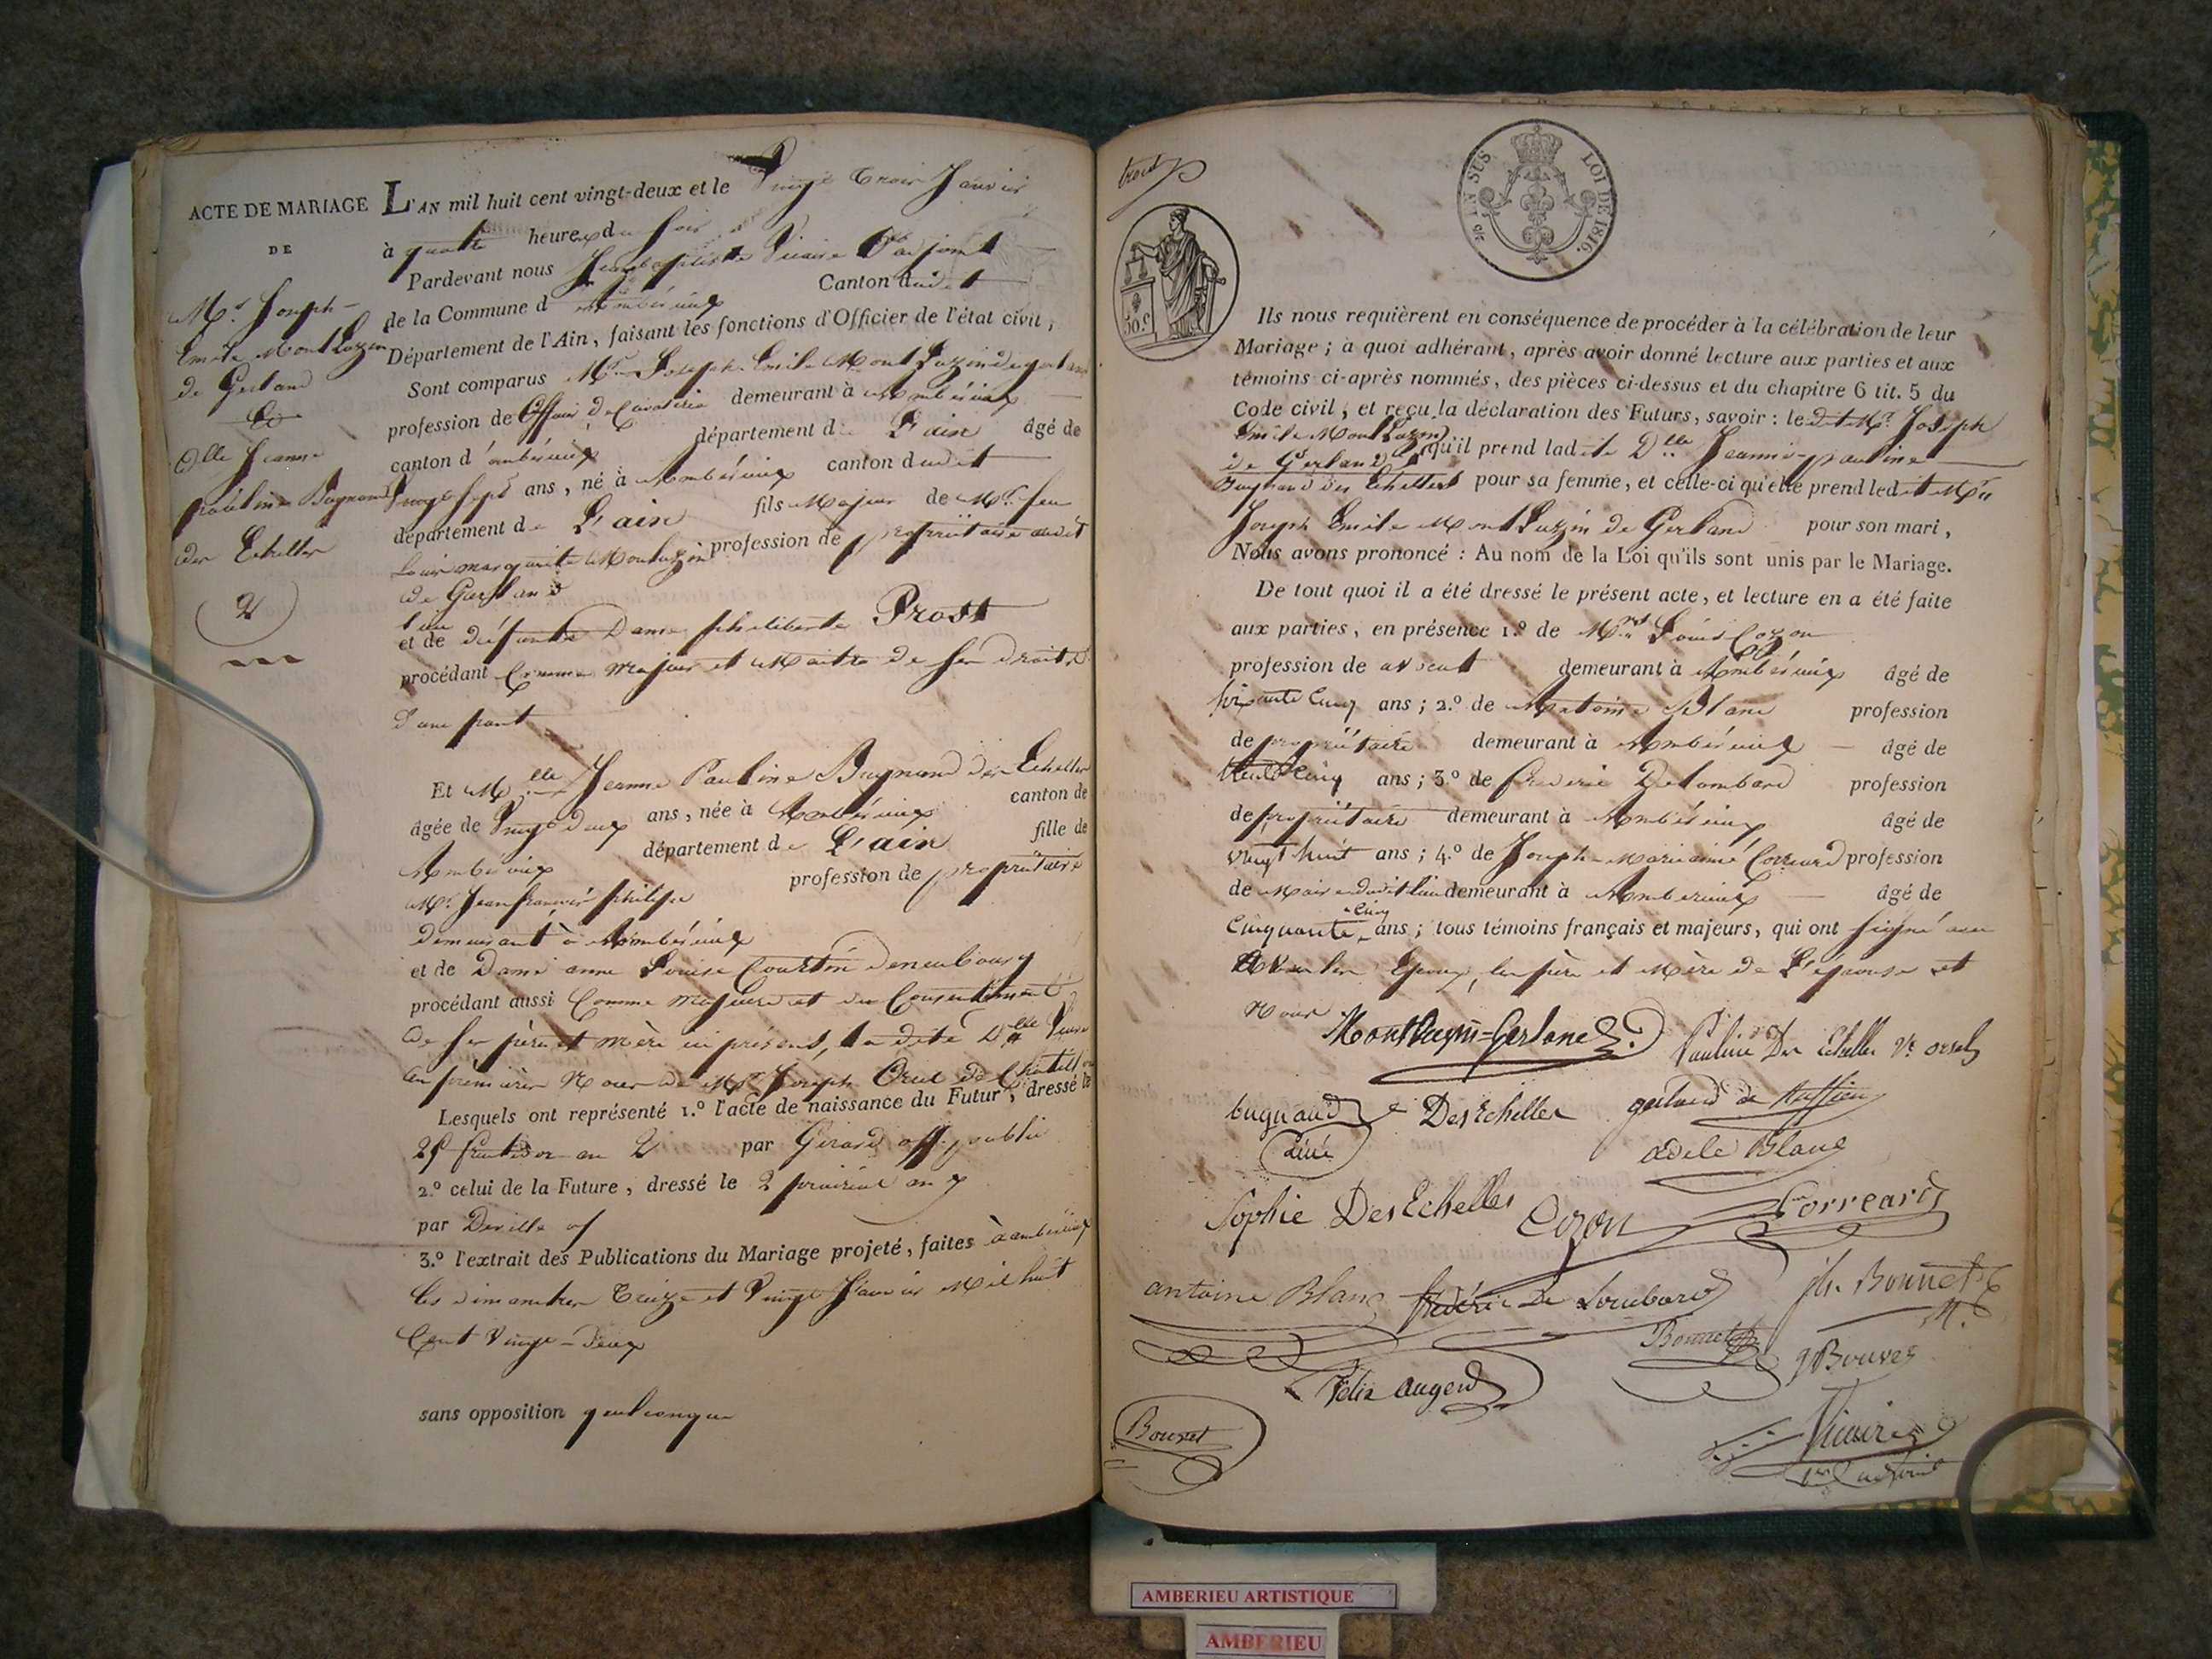 ACTE DE MARIAGE
DE
Mr. Joseph
Emile MontLuzin
de Gerland
Et
Dlle Jeanne
pauline Bugnand
des Echelles
2
L'AN mil huit cent vingt-deux et le Vingt trois Janvier
à quatre heures du soir
Pardevant nous Jean baptiste Vicaire 1er adjoint
de la Commune d'Ambérieux Canton dudit
Département de l'Ain, faisant les fonctions d'Officier de l'état civil,
Sont comparus Mr. Joseph Emile MontLuzin de gerland
profession de Officier de Cavalerie demeurant à Ambérieux
canton d'ambérieux département de L'ain âgé de
Vingt sept ans, né à Ambérieux canton dudit
département de L'ain fils Majeur de Mr. feu
Louis marguerite Montluzin profession de propriétaire audit
de Gerland
lieu
et de défunte Dame philiberte Prost
procédant Comme majeur et Maitre de ses droits
d'une part
Et Mlle Jeanne Pauline Bugnand des Echelles
âgée de Vingt deux ans, née à Ambérieux canton de
Ambérieux département de L'ain fille de
Mr. Jean françois philippe profession de propriétaire
demeurant à Ambérieux
et de Dame anne Louise Courtin deneubourg
procédant aussi Comme majeure et du Consentement
de ses père et mère ici présents, la dite Dlle Veuve
en premières Noces de Mr Joseph Orsel de Chatillon
Lesquels ont représenté 1.º l'acte de naissance du Futur, dressé le
25 fructidor an 2 par Girard off. public
2.º celui de la Future, dressé le 2 prairial an 7
par Deville of
3.º l'extrait des Publications du Mariage projeté, faites à ambérieux
les dimanches Treize et Vingt Janvier Mil huit
Cent Vingt-Deux
sans opposition quelconque
TIMBRE
LOI DE 1816.
50 c
Ils nous requièrent en conséquence de procéder à la célébration de leur
Mariage; à quoi adhérant, après avoir donné lecture aux parties et aux
témoins ci-après nommés, des pièces ci-dessus et du chapitre 6 tit. 5 du
Code civil, et reçu la déclaration des Futurs, savoir: ledit Mr. Joseph
Emile MontLuzin
de Gerland qu'il prend ladite Dlle Jeanne-pauline
Bugnand des Echelles pour sa femme, et celle-ci qu'elle prend ledit Mr
Joseph Emile MontLuzin de Gerland pour son mari,
Nous avons prononcé: Au nom de la Loi qu'ils sont unis par le Mariage.
De tout quoi il a été dressé le présent acte, et lecture en a été faite
aux parties, en présence 1.º de Mrs Louis Cozon
profession de avocat demeurant à Ambérieux âgé de
soixante Cinq ans; 2.º de Antoine Blanc profession
de propriétaire demeurant à Ambérieux âgé de
trente Cinq ans; 3.º de frederic Delombard profession
de propriétaire demeurant à Ambérieux âgé de
vingt huit ans; 4.º de Joseph Marie aimé Correard profession
de Maire dudit lieu demeurant à Amberieux âgé de
Cinquante Cinq ans; tous témoins français et majeurs, qui ont signé avec
les Epoux, les père et Mère de L'épouse et
Nous
MontLuzin-Gerland
Pauline Des Echelles Ve orsel
bugnand Des Echelles
ainé
gerland de Ruffieu
adele Blanc
Sophie Des Echelles
Cozon
Correard
antoine Blanc
frédéric De Lombard
jh. Bonnet
Bonnet
Felix augerd
Bonnet
Vicaire
1er adjoint
AMBERIEU ARTISTIQUE
AMBERIEU